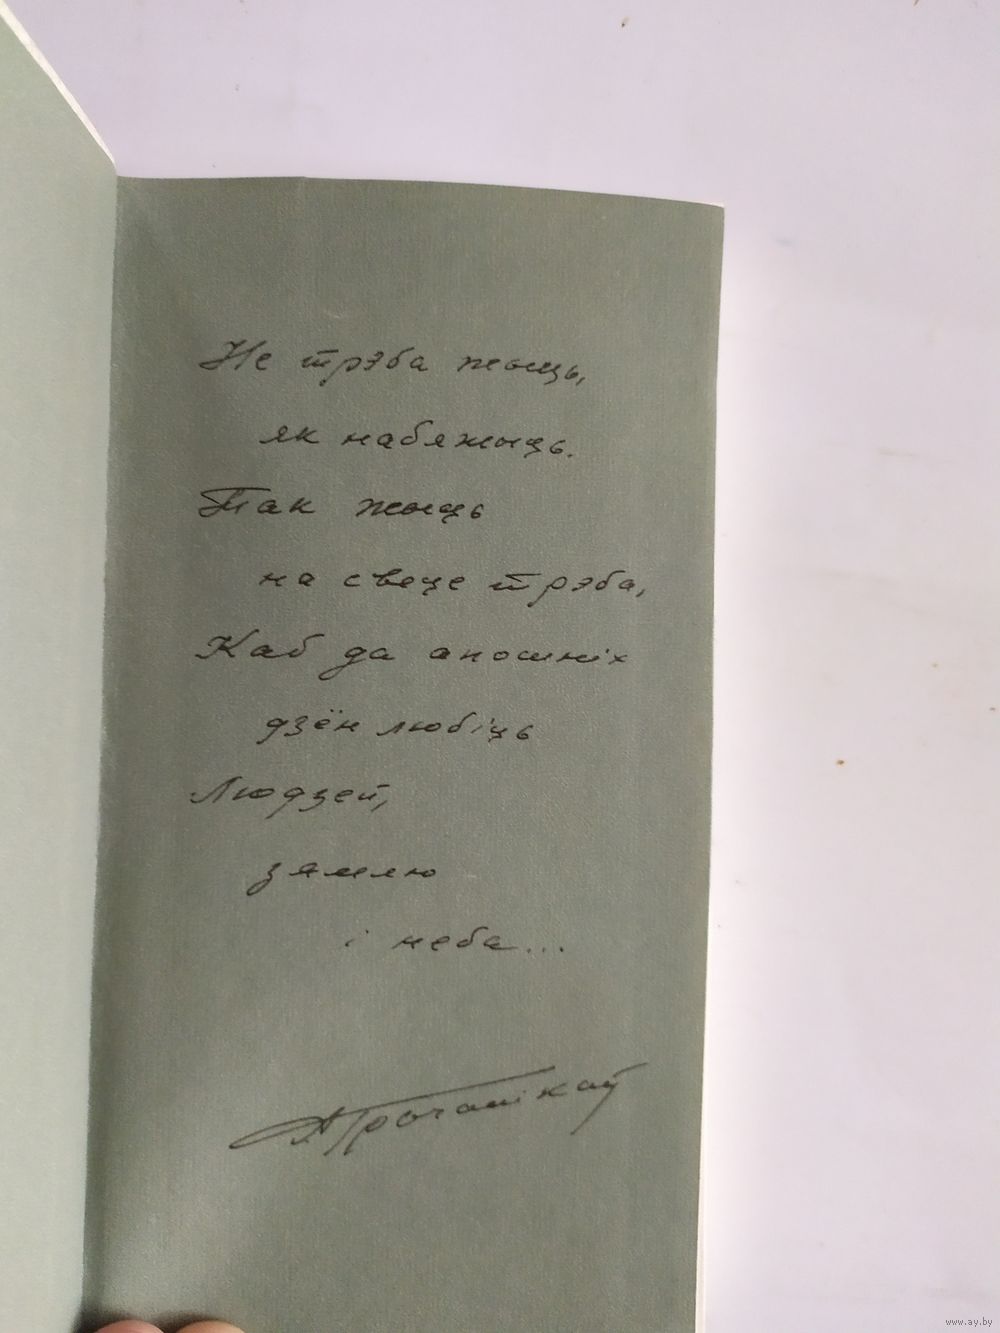 Не трэба жыць,
як набяжыць.
Так жыць
на свеце трэба,
Каб да апошніх
дзён любіць
Людзей,
зямлю
і неба...
www.ay.by